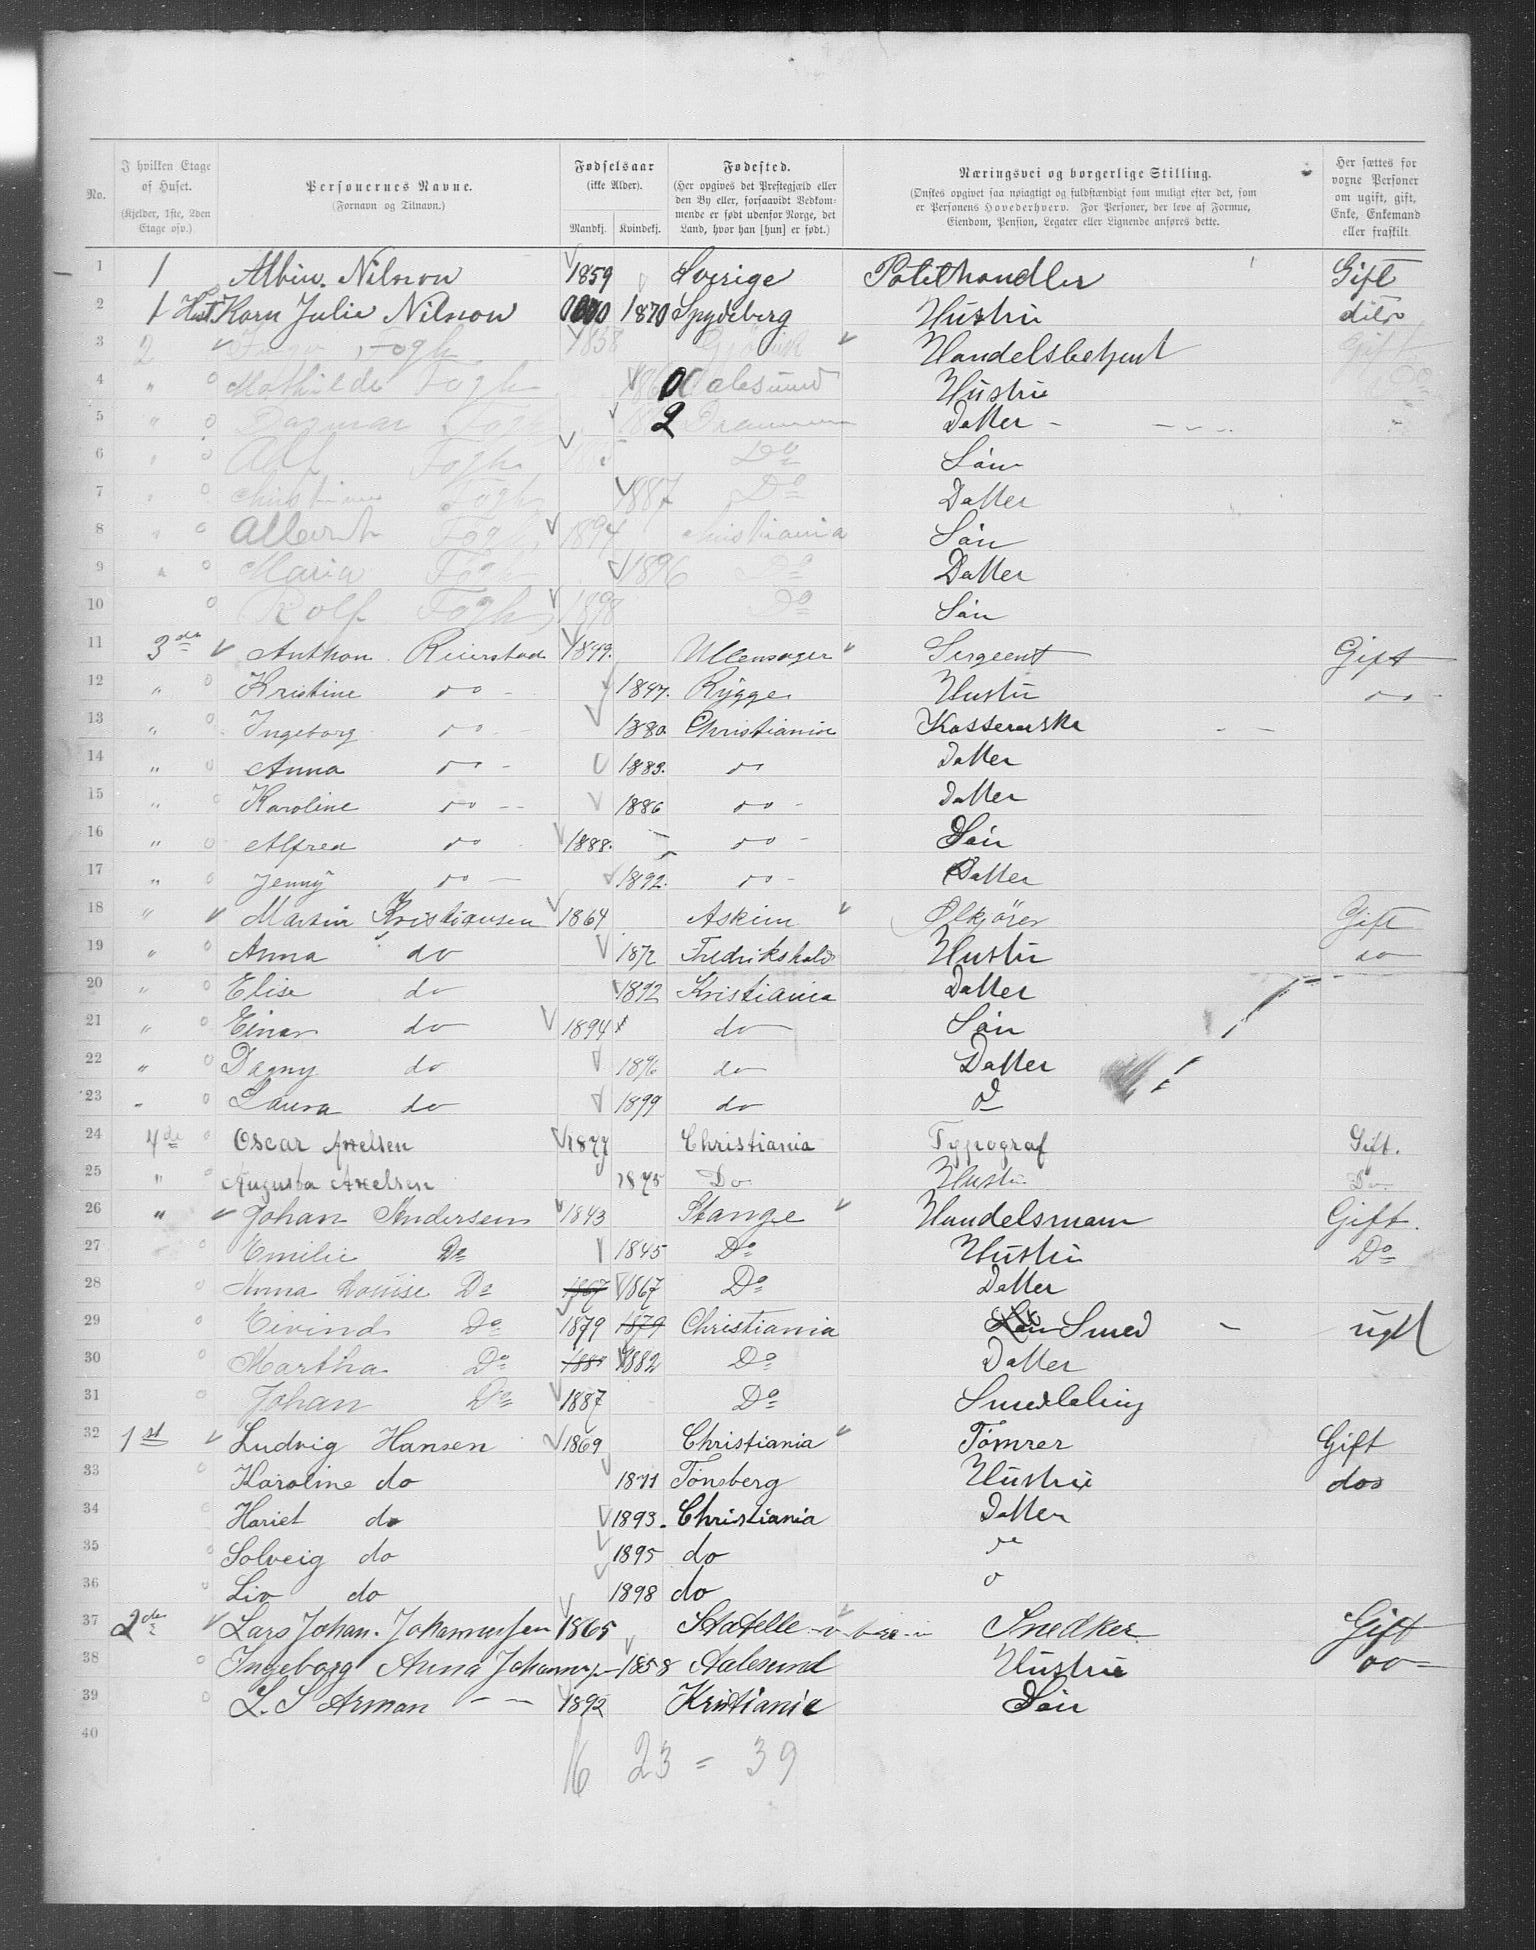 No. | I hvilken Etage of Huset. (Kjelder, 1ste, 2den Etage osv.) | Personernes Navne. (Fornavn og Tilnavn.) | Fødselsaar (ikke Alder). Mandkj. Kvindekj. | Fødested. (Her opgives det Prestegjæld eller den By eller, forsaavidt Bedkommende er født udenfor Norge, det Land, hvor han [hun] er født.) | Næringsvei og borgerlige Stilling. (Ønskes opgivet saa nøiagtigt og fuldstændigt som muligt efter det, som er Personens Hovederhverv. For Personer, der leve af Formue, Eiendom, Pension, Legater eller Lignende anføres dette. | Her sættes for voxne Personer om ugift, gift, Enke, Enkemand eller fraskilt.
1 1 Albin Nilsson 1859 Sverige Potethandler Gift
2 1 Karn Julie Nilsson 1870 Spydeberg Hustru dito
3 2 Fogh 1858 Gjøvik Handelsbetjent Gift
4 " Mathilde Fogh Aalesund Hustru Do
5 " Dagmar Fogh Drammen Datter
6 " Alf Fogh Do Søn
7 " Christiane Fogh 1887 Do Datter
8 " Albert Fogh 1894 Christiania Søn
9 " Maria Fogh 1896 Do Datter
10 Rolf Fogh 1898 Do Søn
11 3de Anthon Reierstad 1849. Ullensager Sergeent Gift
12 " Kristine do 1847. Rygge Hustru do
13 " Ingeborg do 1880 Christiania
14 " Anna do 1883. do Datter
15 " Karoline do 1886 do Datter
16 " Alfred do 1888. do Søn
17 " Jenny do 1892. do Datter
18 " Martin Kristiansen 1864 Askim Ølkjører Gift
19 " Anna do 1872 Fredrikshald Hustru do
20 " Elise do 1892 Kristiania Datter
21 " Einar do 1894 do Søn
22 " Dagny do 1896 do Datter
23 " Laura do 1899 do
24 4de Oscar Axelsen 1877 Christiania Typograf Gift.
25 " Augusta Axelsen 1875 Do Hustru Do
26 " Johan Andersen 1843 Stange Handelsmann Gift.
27 Emilie Do 1845 Do Hustru Do
28 Anna Louise Do 1867 1867 Do Datter
29 Eivind Do 1879 1879 Christiania Søn Smed ugt
30 Martha Do 1882 Do Datter
31 Johan Do 1887 Do Smedleling
32 1st Ludvig Hansen 1869 Christiania Tømrer Gift
33 Karoline do 1871 Tønsberg Hustru do
34 Hariet do 1893. Christiania Datter
35 Solveig do 1895 do
36 Liv do 1898 do
37 2de Lars Johan Johannessen 1865 Statelle Snedker Gift
38 Ingeborg Anna 1858 Aalesund Hustru do
39 L. S Arman 1892 Kristiania Søn
40
16 23 = 39